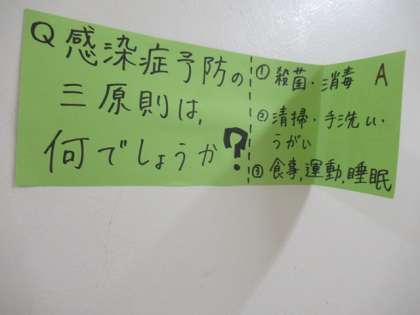 Q 感染症予防の
三原則は、
何でしょうか?
① 殺菌・消毒 A
② 清掃・手洗い・
うがい
③ 食事,運動,睡眠